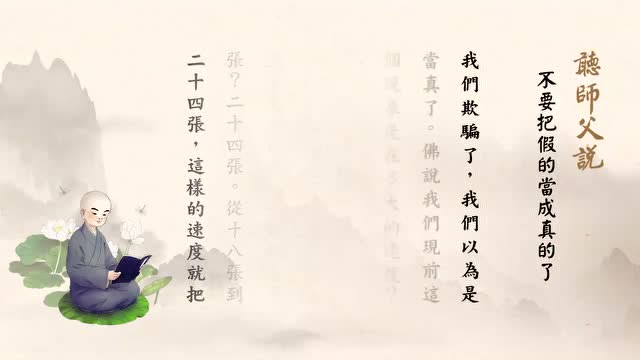 聽師父説
不要把假的當成真的了
我們欺騙了，我們以為是
當真了。佛說我們現前這
張？二十四張。從十八張到
二十四張，這樣的速度就把